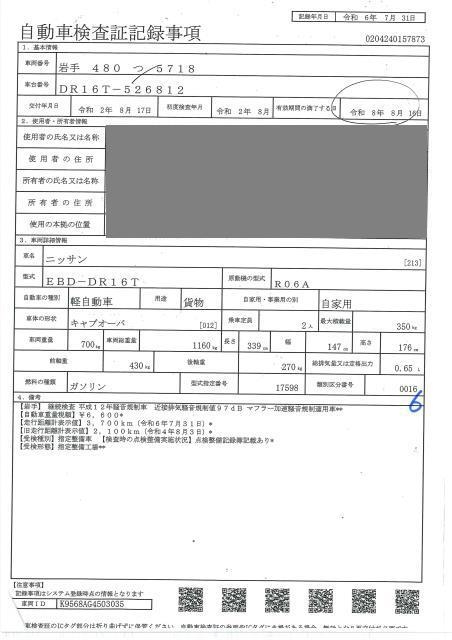 記録年月日 令和 6年 7月 31日
自動車検査証記録事項
0204240157873
1. 基本情報
車両番号 岩手 480 つ 5718
車台番号 DR16T-526812
交付年月日 令和 2年 8月 17日 初度検査年月 令和 2年 8月 有効期間の満了する日 令和 8年 8月 16日
2. 使用者・所有者情報
使用者の氏名又は名称
使用者の住所
所有者の氏名又は名称
所有者の住所
使用の本拠の位置
3. 車両詳細情報
車名 ニッサン [213]
型式 EBD-DR16T 原動機の型式 R06A
自動車の種別 軽自動車 用途 貨物 自家用・事業用の別 自家用
車体の形状 キャブオーバ [012] 乗車定員 2人 最大積載量 350kg
車両重量 700kg 車両総重量 1160kg 長さ 339cm 幅 147cm 高さ 176cm
前軸重 430kg 後軸重 270kg 総排気量又は定格出力 0.65 L
燃料の種類 ガソリン 型式指定番号 17598 類別区分番号 0016
4. 備考
6
【岩手】 継続検査 平成12年騒音規制車 近接排気騒音規制値97dB マフラー加速騒音規制適用車**
【自動車重量税額】¥6,600*
【走行距離計表示値】3,700km（令和6年7月31日）*
【旧走行距離計表示値】2,100km（令和4年8月3日）*
【受検種別】指定整備車 【検査時の点検整備実施状況】点検整備記録簿記載あり*
【受検形態】指定整備工場**
【注意事項】
記録事項はシステム登録時点の情報となります
車両ID K9568AG4503035